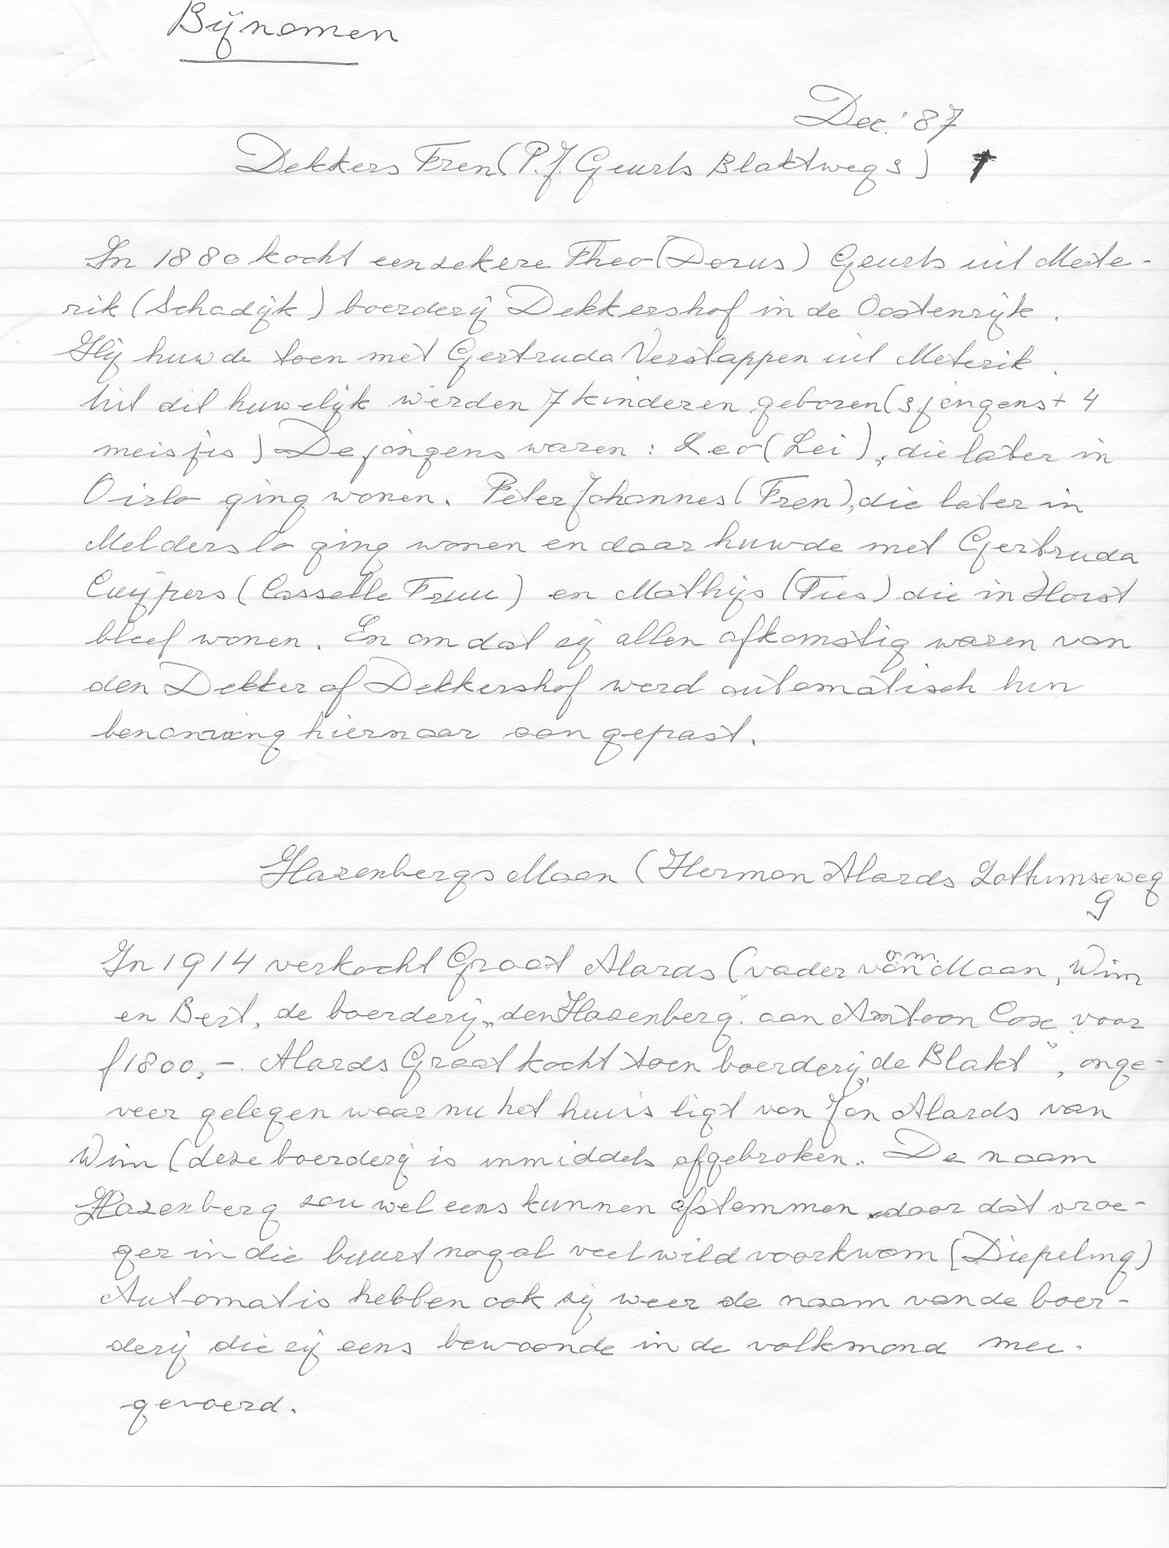 Bijnamen
Dec. '87
Dekkers Fren (P.J. Geurts Blaktweg 3) †
In 1880 kocht een zekere Theo (Dorus) Geurts uit Mete-
rik (Schadijk) boerderij Dekkershof in de Oostenrijk.
Hij huwde toen met Gertruda Verstappen uit Meterik.
Uit dit huwelijk werden 7 kinderen geboren (3 jongens + 4
meisjes) De jongens waren: Leo (Lei), die later in
Oirlo ging wonen. Peter Johannes (Fren), die later in
Melderslo ging wonen en daar huwde met Gertruda
Cuijpers (Casselle Truu) en Mathijs (Ties) die in Horst
bleef wonen. En omdat zij allen afkomstig waren van
den Dekker of Dekkershof werd automatisch hun
benaming hiernaar aangepast.
Hazenbergs Maan (Herman Alards Lottumseweg
9
In 1914 verkocht Graat Alards (vader van om Maan, Wim
en Bert, de boerderij „den Hazenberg" aan Antoon Cox voor
f 1800,-. Alards Graat kocht toen boerderij „de Blakt", onge-
veer gelegen waar nu het huis ligt van Jan Alards van
Wim (deze boerderij is inmiddels afgebroken. De naam
Hazenberg zou wel eens kunnen afstammen door dat vroe-
ger in die buurt nogal veel wild voorkwam (Diepeling)
Automatis hebben ook zij weer de naam van de boer-
derij die zij eens bewoonde in de volksmond mee-
gevoerd.